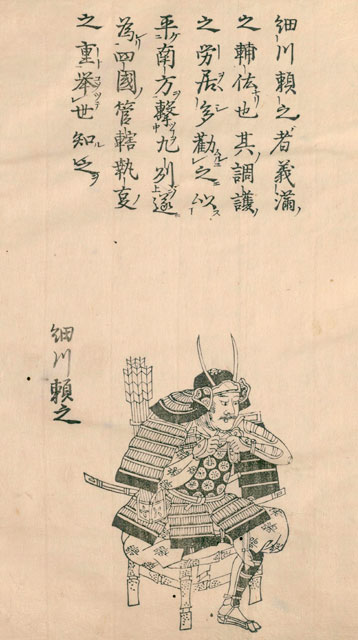 細川頼之者義満
之輔佐也其調護
之労居多勸之以
平南方撃九州遂
為四國管轄執叓
之重挙世知之
細川頼之